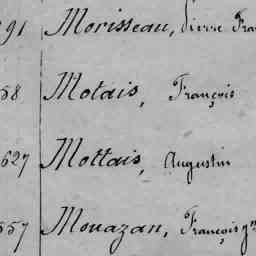 91 Morisseau, Pierre Fran
58 Motais, François
627 Mottais, Augustin
557 Mouazan, François